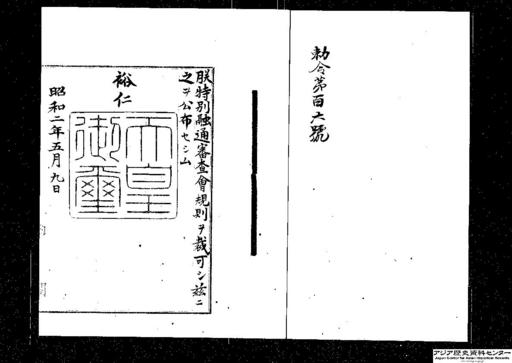 勅令第百六號
朕特別融通審査會規則ヲ裁可シ茲ニ
之ヲ公布セシム
裕仁
天皇
御璽
昭和二年五月九日
アジア歴史資料センター
Japan Center for Asian Historical Records